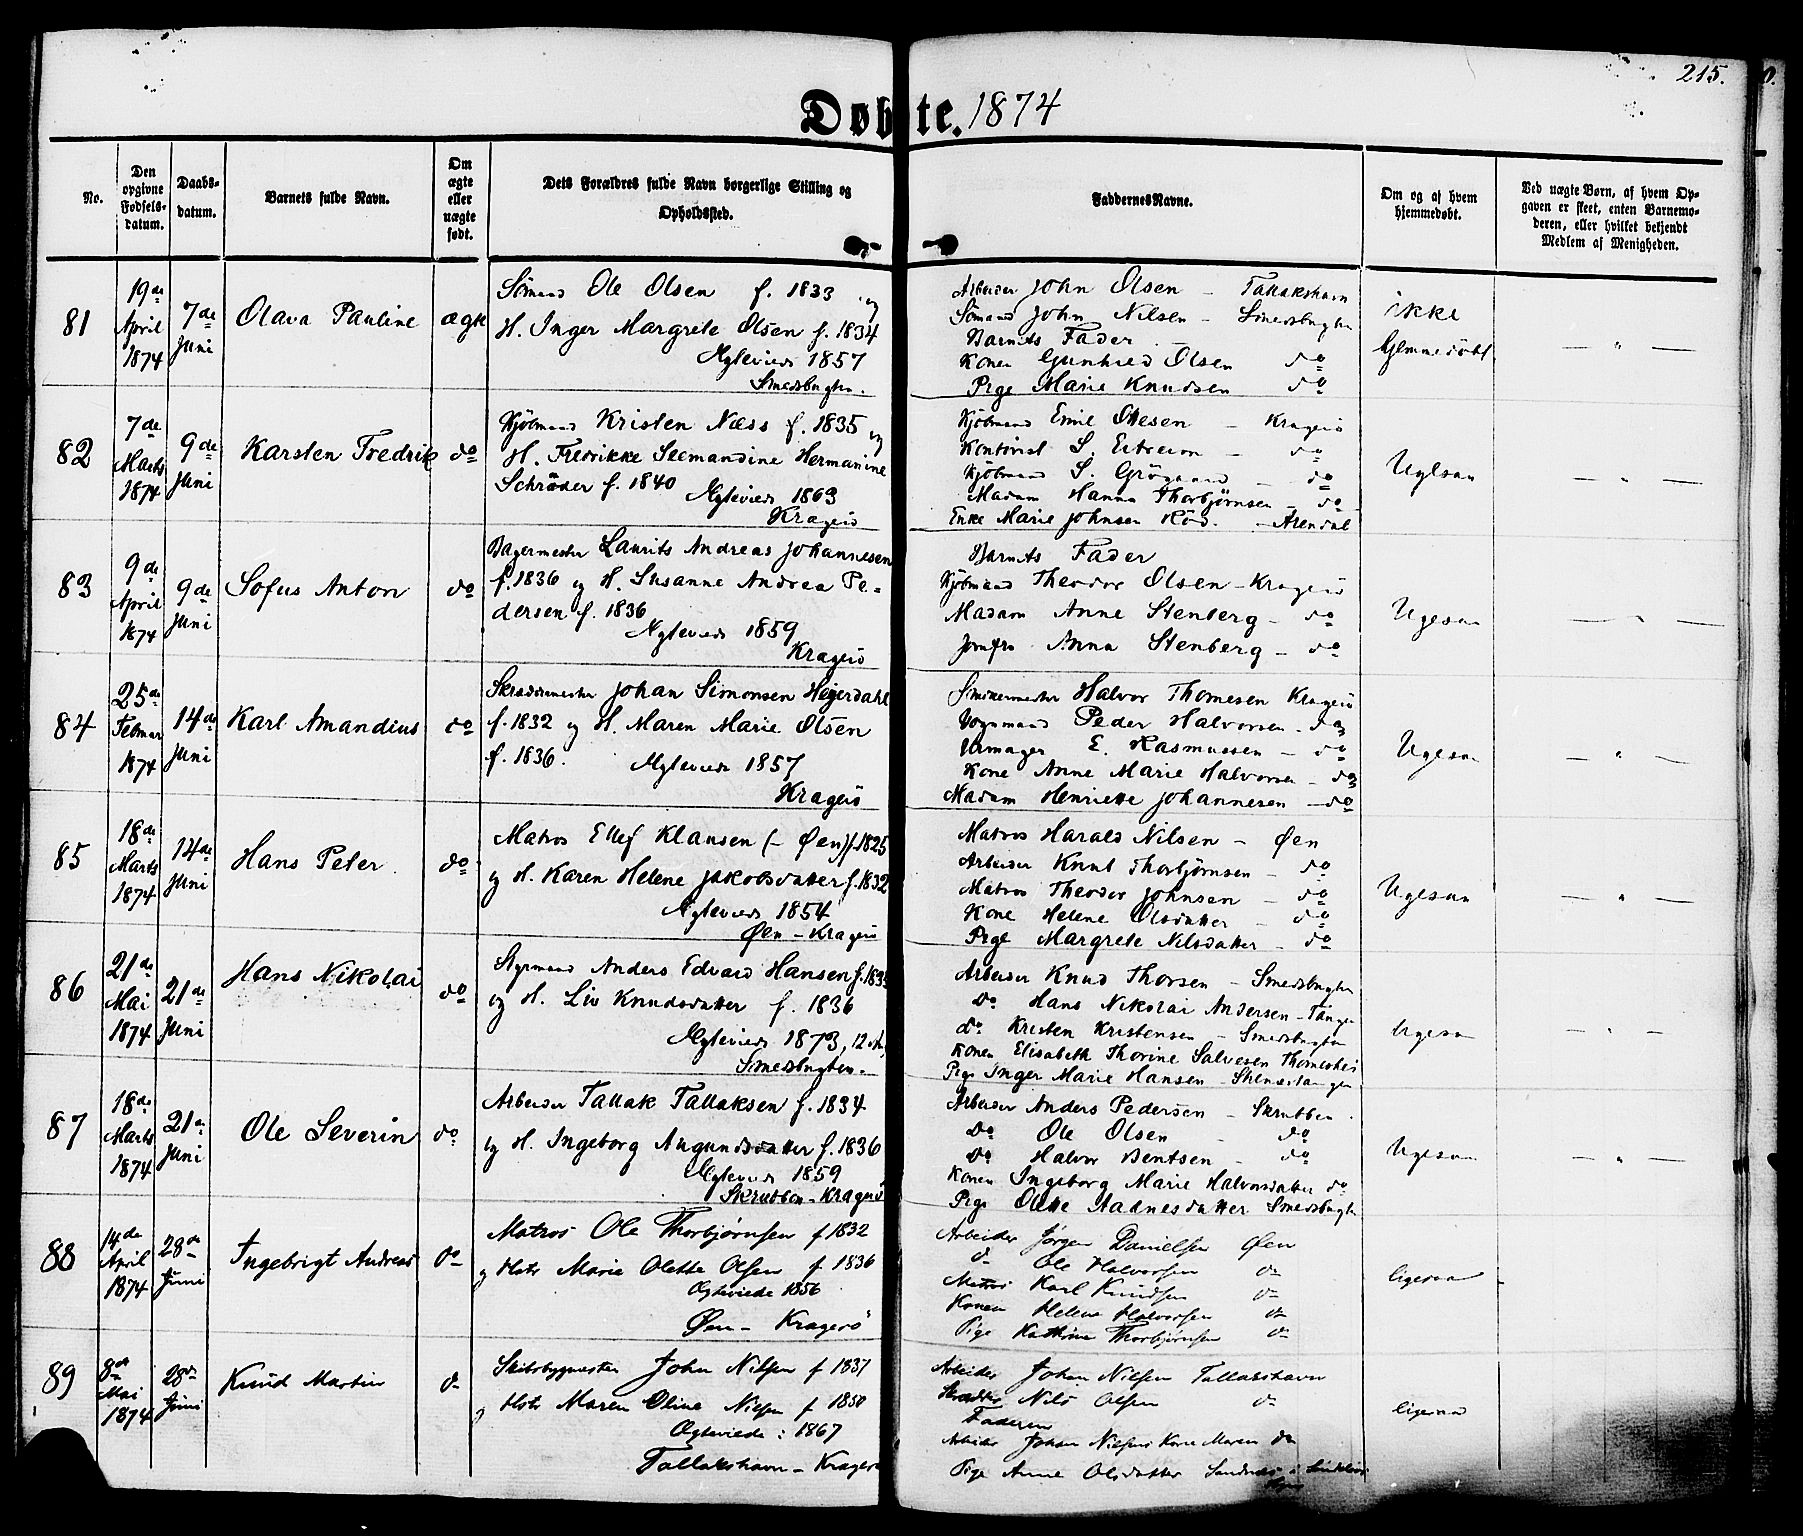 215.
Døbte. 1874
No.
Den opgivne Fødsels-datum.
Daabs-datum.
Barnets fulde Navn.
Om ægte eller uægte født.
Dets Forældres fulde Navn borgerlige Stilling og Opholdssted.
Faddernes Navne.
Om og af hvem hjemmedøbt.
Ved uægte Børn, af hvem Opgaven er skeet, enten Barnemoderen, eller hvilket bekjendt Medlem af Menigheden.
81
19de April 1874
7de Juni
Olava Pauline
ægte
Sømand Ole Olsen f. 1833 og
H. Inger Margrete Olsen f. 1834
Ægteviede 1857
Smedsbugten.
Arbeider John Olsen - Tallakshavn
Sømand John Nilsen - Smedsbugten
Barnets Fader
Konen Gunhild Olsen do
Pige Marie Knudsen do
ikke hjemmedøbt
— " —
82
7de Marts 1874
9de Juni
Karsten Fredrik
do
Kjøbmand Kristen Næss f. 1835 og
H. Fredrikke Hermanine
Schrøder f. 1840 Ægteviede 1863
Kragerø
Kjøbmand Emil Ottesen - Kragerø
Kontorist S. - do
Kjøbmand S. - do
Madam Hanna Thorbjørnsen - do
Enke Marie Johnsen - Arendal
Ligesaa
— " —
83
9de April 1874
9de Juni
Sofus Anton
do
Bagermester Laurits Andreas Johannesen
f. 1836 og H. Susanne Andrea Pe-
dersen f. 1836
Ægteviede 1859
Kragerø
Barnets Fader
Kjøbmand Theodor Olsen - Kragerø
Madam Anne Stenberg - do
Jomfru Anna Stenberg - do
Ligesaa
— " —
84
25de Februar 1874
14de Juni
Karl Amandius
do
Skræddermester Johan Simonsen Heyerdahl
f. 1832 og H. Maren Marie Olsen
f. 1836. Ægteviede 1857
Kragerø
Halvor Thomesen Kragerø
Vognmand Peder Halvorsen - do
Urmager E. Rasmussen - do
Kone Anne Marie Halvorsen - do
Madam Henriette Johannesen - do
Ligesaa
— " —
85
18de Marts 1874
14de Juni
Hans Peter
do
Matros Ellef Klausen (- Øen) f. 1825
og H. Karen Helene Jakobsdatter f. 1832
Ægteviede 1854
Øen - Kragerø
Matros Harald Nilsen - Øen
Arbeider Knut Thorbjørnsen - do
Matros Theodor Johnsen - do
Kone Helene Olsdatter - do
Pige Margrete Nilsdatter - do
Ligesaa
— " —
86
21de Mai 1874
21de Juni
Hans Nikolai
do
Styrmand Anders Edvard Hansen
og H. Liv Knudsdatter f. 1836
Ægteviede 1873,
Smedsbugten.
Arbeider Knud Thorsen - Smedsbugten
Do Hans Nikolai Andersen - Tangen
do Kristen Kristensen - Smedsbugten
Konen Elisabeth Thorine Salvesen
Pige Inger Marie Hansen -
Ligesaa
— " —
87
18de Marts 1874
21de Juni
Ole Severin
do
Arbeider Tallak Tallaksen f. 1834
og H. Ingeborg Augundsdatter f. 1836
Ægteviede 1859
Skrubben - Kragerø
Arbeider Anders Pedersen - Skrubben
Do Ole Olsen - do
Do Halvor Bentsen - do
Konen Ingeborg Marie Halvorsdatter do
Pige Olette Aadnesdatter Smedsbugten
Ligesaa
— " —
88
14de April 1874
28de Juni
Ingebrigt Andreas
do
Matros Ole Thorbjørnsen f 1832
og Hstr Marie Olette Olsen f 1836
Ægteviede 1856
Øen - Kragerø
Arbeider Jørgen Danielsen Øen
do Ole Halvorsen do
Matros Karl Knudsen do
Konen Helene Halvorsen do
Pige Kathrine Thorbjørnsen do
ligesaa
89
8de Mai 1874
28de Juni
Knud Martin
do
Skibsbygmester John Nilsen f 1837
og Hstr Maren Oline Nilsen f 1850
Ægteviede : 1867
Tallakshavn - Kragerø
Arbeider Johan Nilsen Tallakshavn
Skrædder Nils Olsen do
Faderen
Arbeider Johan Nilsens Kone Maren do
Pige Anne Olsdatter
ligesaa